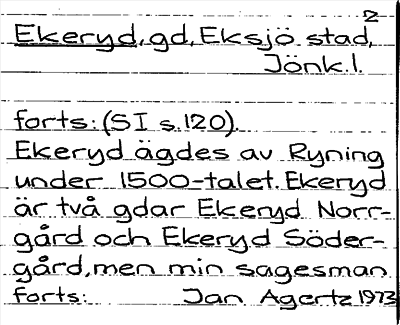 2
Ekeryd, gd, Eksjö stad,
Jönk.l.
forts: (SI s.120).
Ekeryd ägdes av Ryning
under 1500-talet. Ekeryd
är två gdar Ekeryd Norr-
gård och Ekeryd Söder-
gård, men min sagesman
forts: Jan Agertz 1973